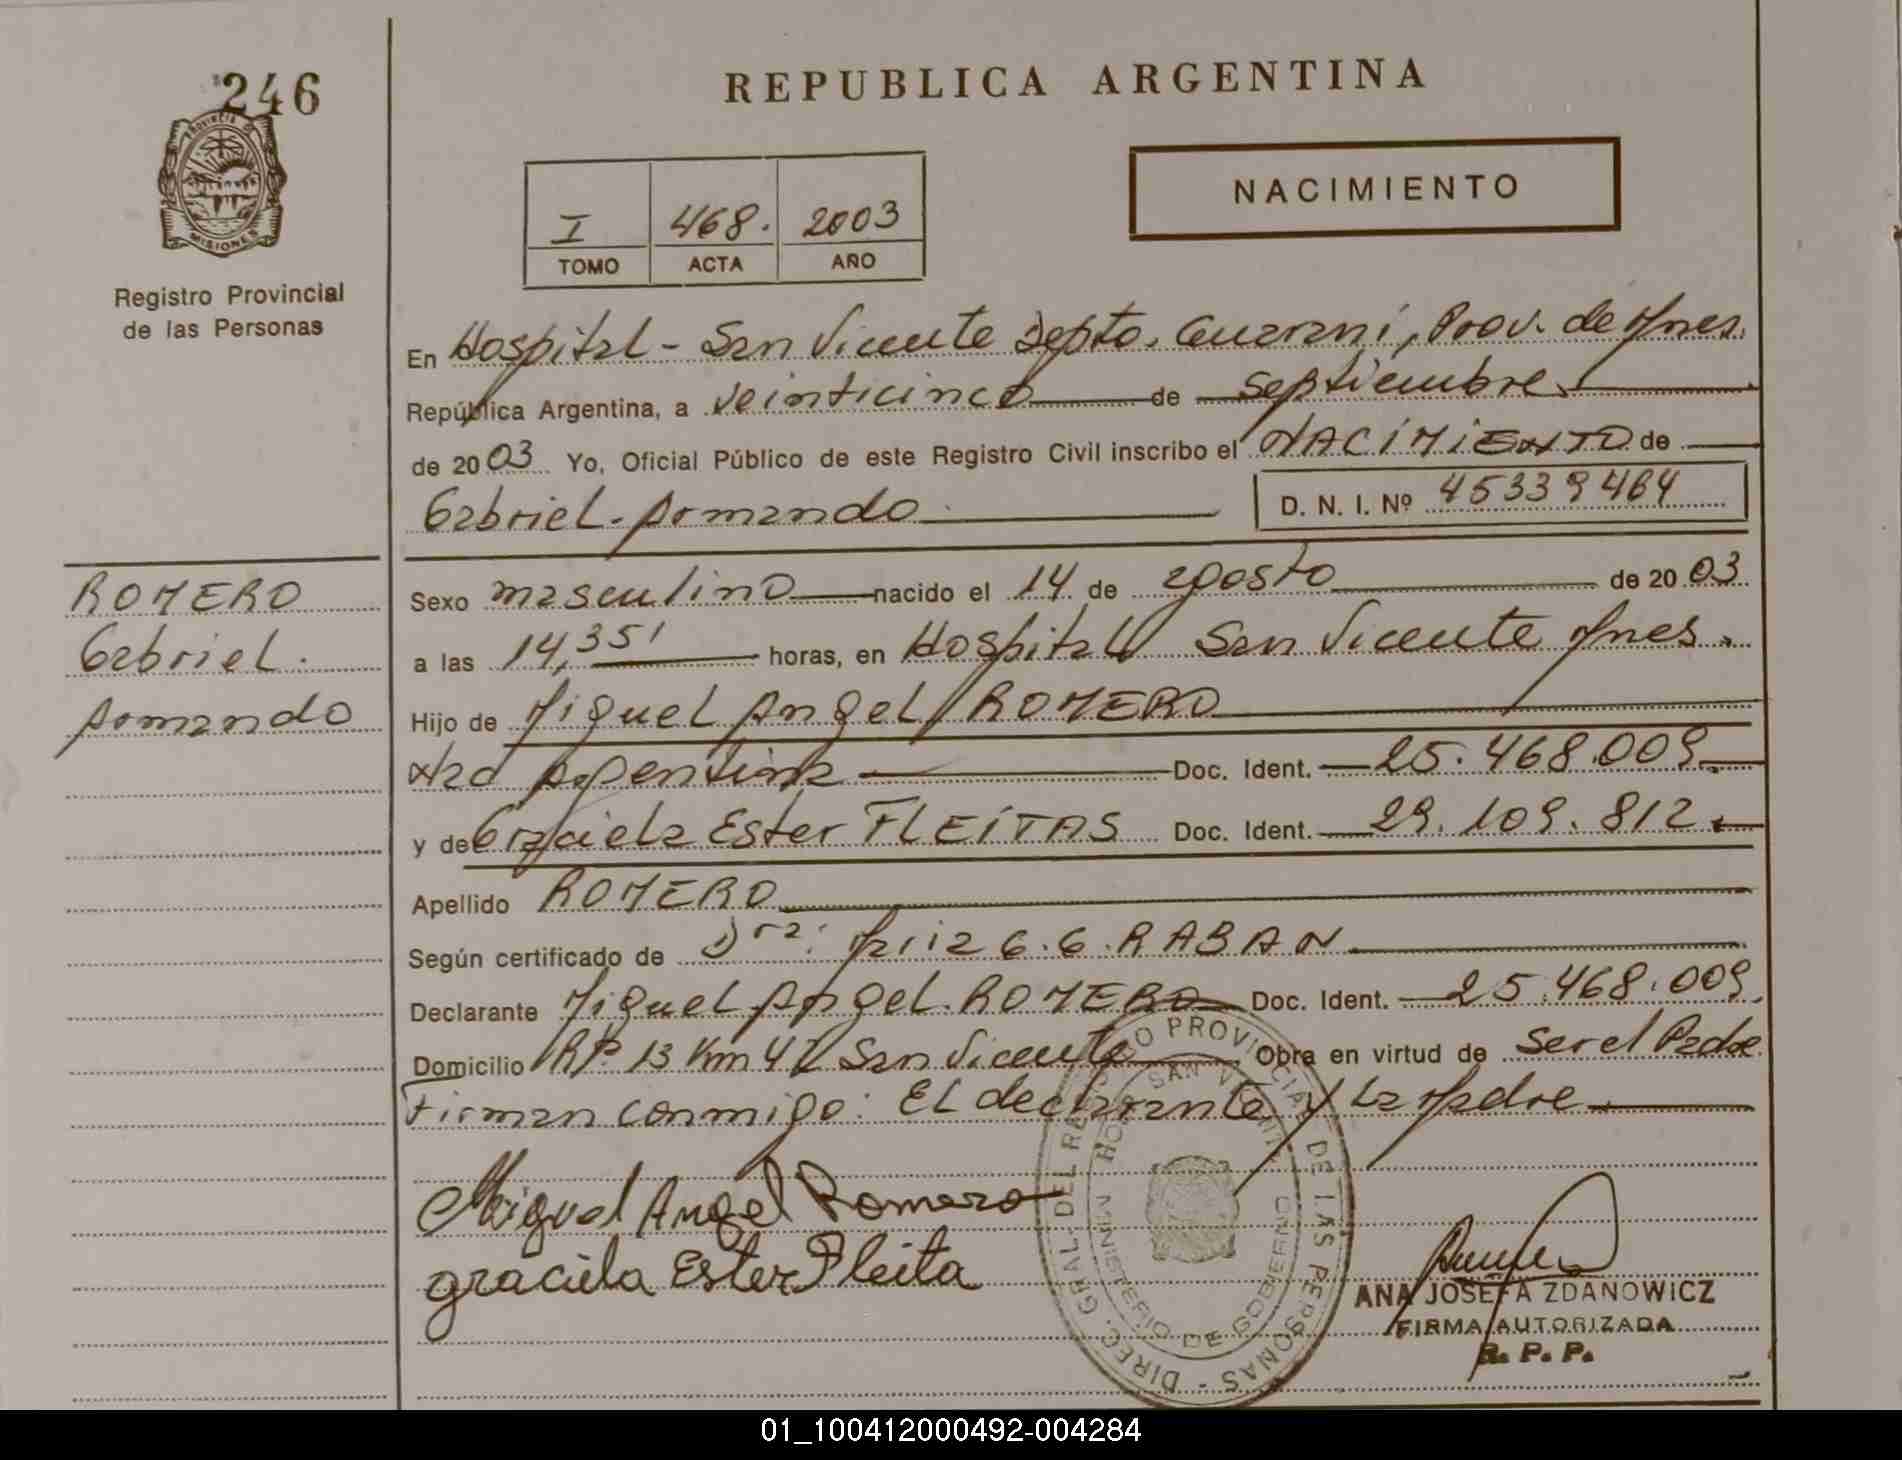 246
PROVINCIA DE
MISIONES
Registro Provincial
de las Personas
REPUBLICA ARGENTINA
I 468. 2003
TOMO ACTA AÑO
NACIMIENTO
En Hospital - San Vicente Depto. Guaraní, Prov. de Mnes.
República Argentina, a veinticinco de septiembre
de 2003 Yo, Oficial Público de este Registro Civil inscribo el NACIMIENTO de
Gabriel Armando
D. N. I. Nº 45339464
ROMERO
Gabriel.
Armando
Sexo masculino nacido el 14 de agosto de 2003
a las 14,35' horas, en Hospital San Vicente Mnes.
Hijo de Miguel Angel ROMERO
Nac Argentina Doc. Ident. 25.468.009
y de Graciela Ester FLEITAS Doc. Ident. 29.109.812
Apellido ROMERO
Según certificado de Dra: María G.G. RABAN
Declarante Miguel Angel ROMERO Doc. Ident. 25.468.009
Domicilio RP. 13 Km 42 San Vicente Obra en virtud de Ser el Padre
Firman conmigo: El declarante y La Madre
Miguel Angel Romero
graciela Ester Fleita
DIREC. GRAL. DEL REGISTRO PROVINCIAL DE LAS PERSONAS
MINISTERIO DE GOBIERNO
ANA JOSEFA ZDANOWICZ
FIRMA AUTORIZADA
R. P. P.
01_100412000492-004284